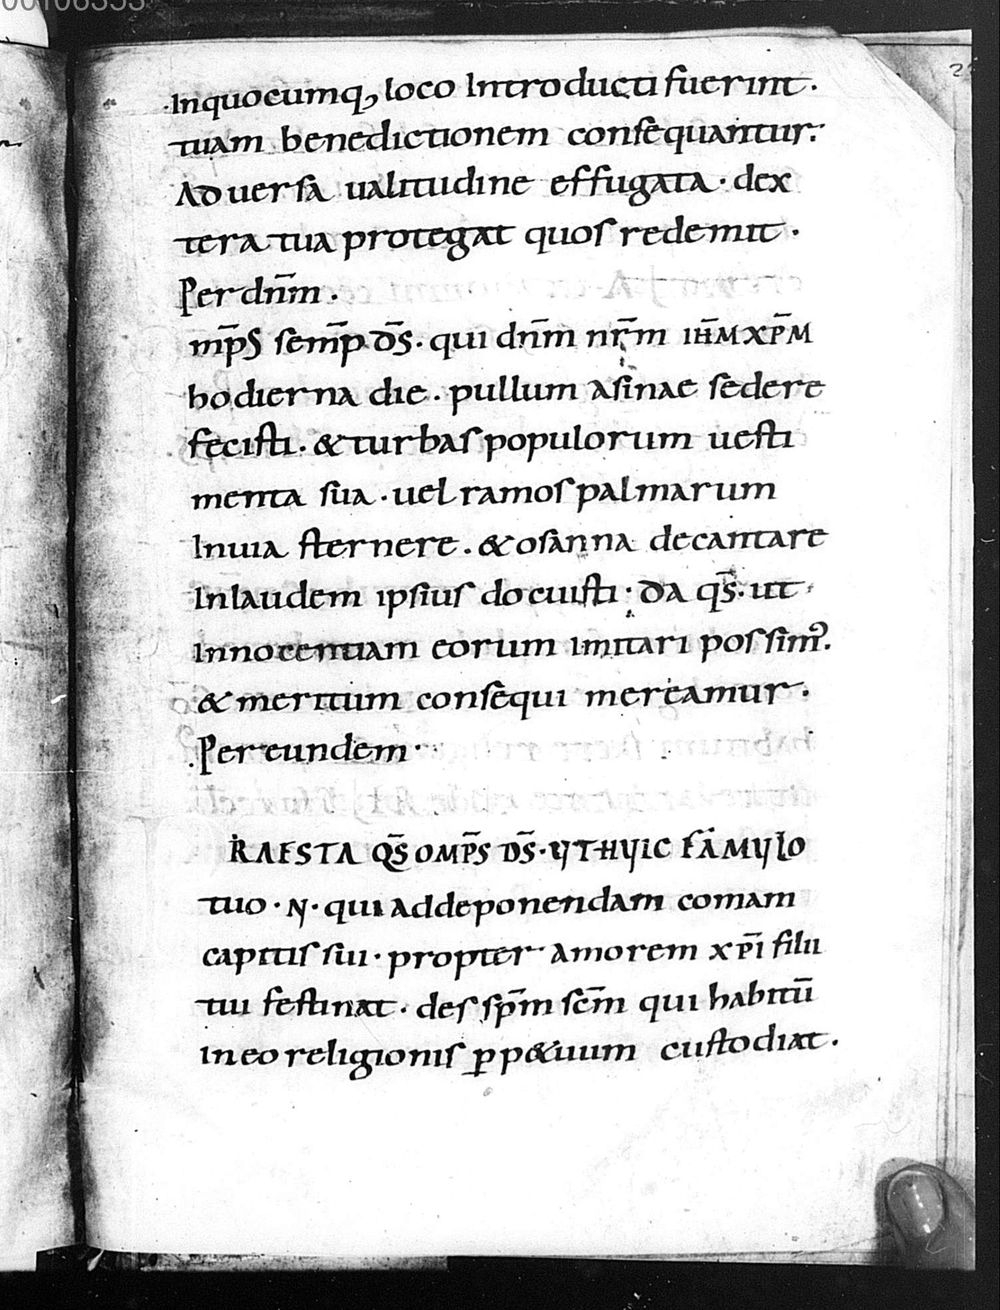 00106353
2
Inquocumq, loco Introducti fuerint.
tuam benedictionem consequantur.
Aduersa ualitudine effugata. dex
tera tua protegat quos redemit.
Per dn̄m.
mp̄s semp̄ ds̄. qui dn̄m nr̄m ih̄m xp̄m
hodierna die. pullum asinae sedere
fecisti. & turbas populorum uesti
menta sua. uel ramos palmarum
Inuia sternere. & osanna decantare
Inlaudem ipsius docuisti. da qs̄. ut
Innocentiam eorum imitari possim᾿.
& meritum consequi mereamur.
Per eundem.
RAESTA QS̄ OMP̄S DS̄. UT HUIC FAMULO
tuo. N. qui addeponendam comam
capitis sui. propter amorem xp̄i filii
tui festinat. des sp̄m sc̄m qui habitū
in eo religionis ꝑp&uum custodiat.